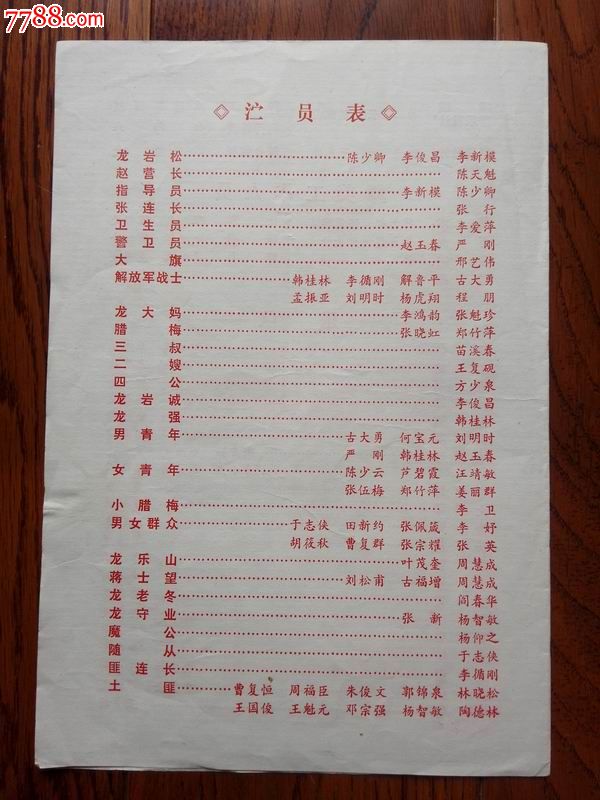 7788.com
◇ 㳂 员 表 ◇
龙岩松……陈少卿 李俊昌 李新模
赵营长……陈天魁
指导员……李新模 陈少卿
张连长……张行
卫生员……李爱萍
警卫员……赵玉春 严刚
大旗……邢艺伟
解放军战士……韩桂林 李循刚 解鲁平 古大勇
孟振亚 刘明时 杨虎翔 程朋
龙大妈……李鸿韵 张魁珍
腊梅……张晓虹 郑竹萍
三叔……苗溪春
二嫂……王复砚
四公……方少泉
龙岩诚……李俊昌
龙强……韩桂林
男青年……古大勇 何宝元 刘明时
严刚 韩桂林 赵玉春
女青年……陈少云 芦碧霞 汪靖敏
张伍梅 郑竹萍 姜丽群
小腊梅……李卫
男女群众……于志侠 田新约 张佩箴 李妤
胡筱秋 曹复群 张宗耀 张英
龙乐山……叶茂奎 周慧成
蒋士望……刘松甫 古福增 周慧成
龙老冬……阎春华
龙守业……张新 杨智敏
魔公……杨仰之
随从……于志侠
匪连长……李循刚
土匪……曹复恒 周福臣 朱俊文 郭锦泉 林晓松
王国俊 王魁元 邓宗强 杨智敏 陶德林